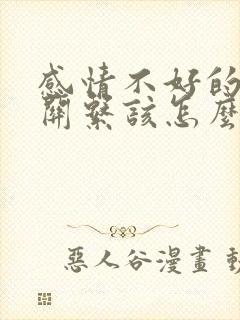 感情不好的
關繫該怎麼
惡人谷漫畫 動